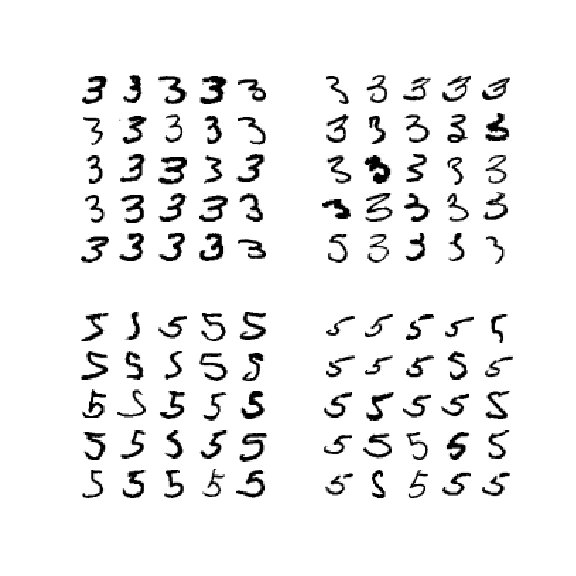 3 3 3 3 3 3 3 3 3 3
3 3 3 3 3 3 3 3 3 3
3 3 3 3 3 3 3 3 3 3
3 3 3 3 3 3 3 3 3 3
3 3 3 3 3 5 3 3 3 3
5 5 5 5 5 5 5 5 5 5
5 5 5 5 5 5 5 5 5 5
5 5 5 5 5 5 5 5 5 5
5 5 5 5 5 5 5 5 5 5
5 5 5 5 5 5 5 5 5 5